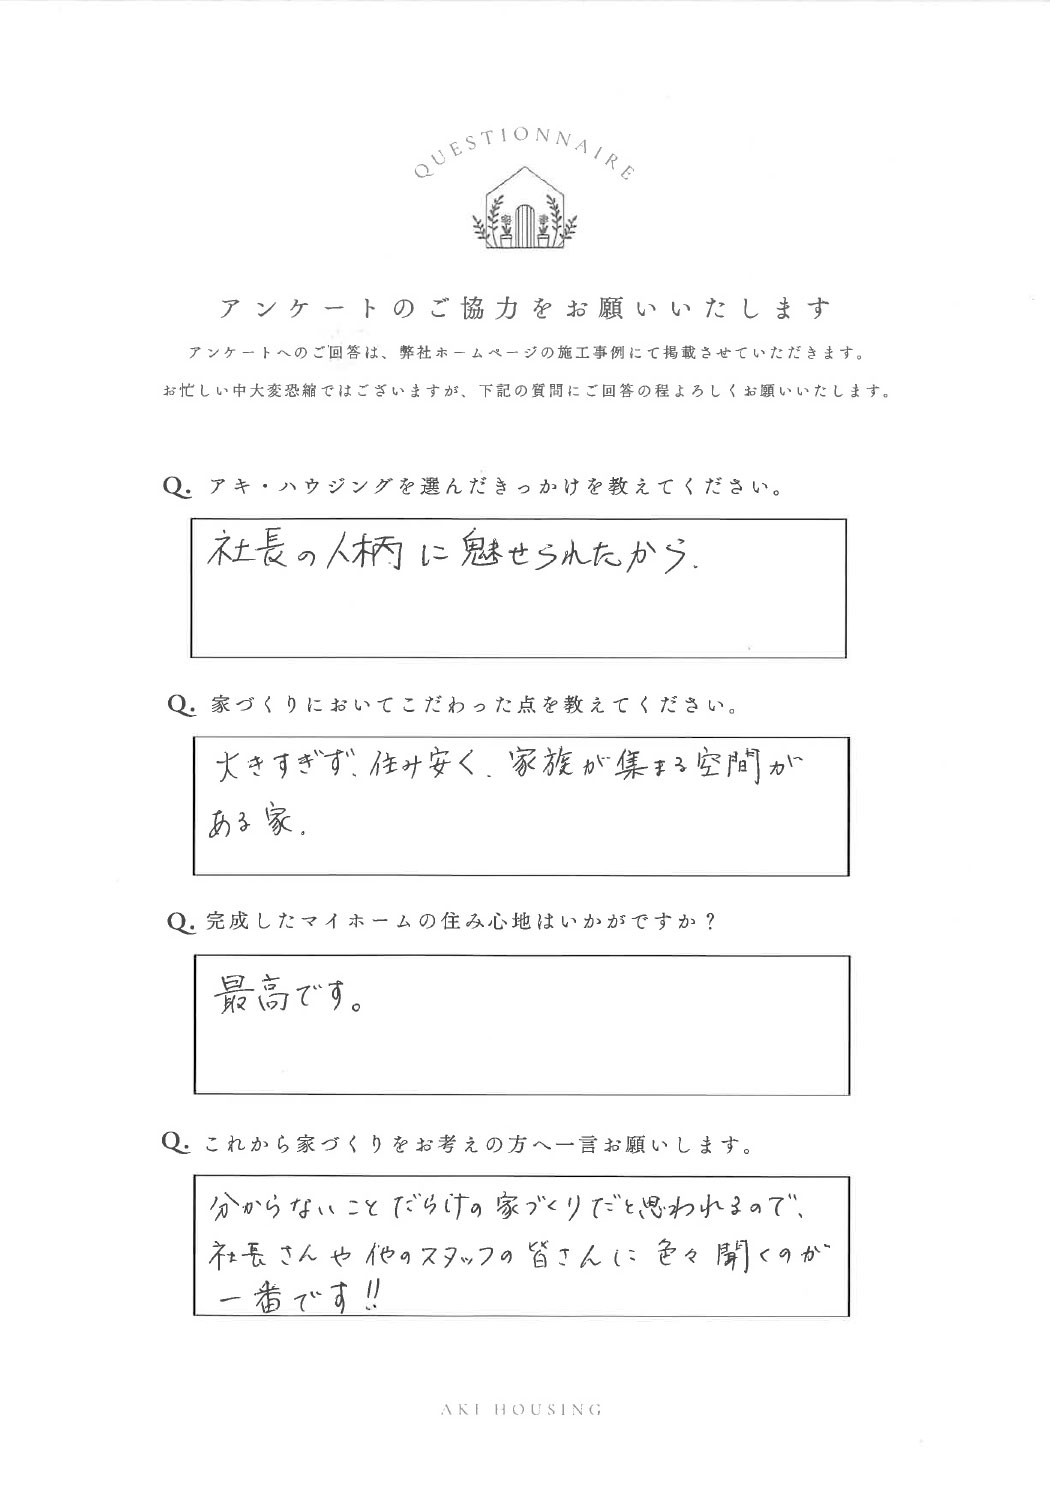 QUESTIONNAIRE
アンケートのご協力をお願いいたします
アンケートへのご回答は、弊社ホームページの施工事例にて掲載させていただきます。
お忙しい中大変恐縮ではございますが、下記の質問にご回答の程よろしくお願いいたします。
Q. アキ・ハウジングを選んだきっかけを教えてください。
社長の人柄に魅せられたから.
Q. 家づくりにおいてこだわった点を教えてください。
大きすぎず、住み安く、家族が集まる空間が
ある家.
Q. 完成したマイホームの住み心地はいかがですか？
最高です。
Q. これから家づくりをお考えの方へ一言お願いします。
分からないことだらけの家づくりだと思われるので、
社長さんや他のスタッフの皆さんに色々聞くのが
一番です!!
AKI HOUSING